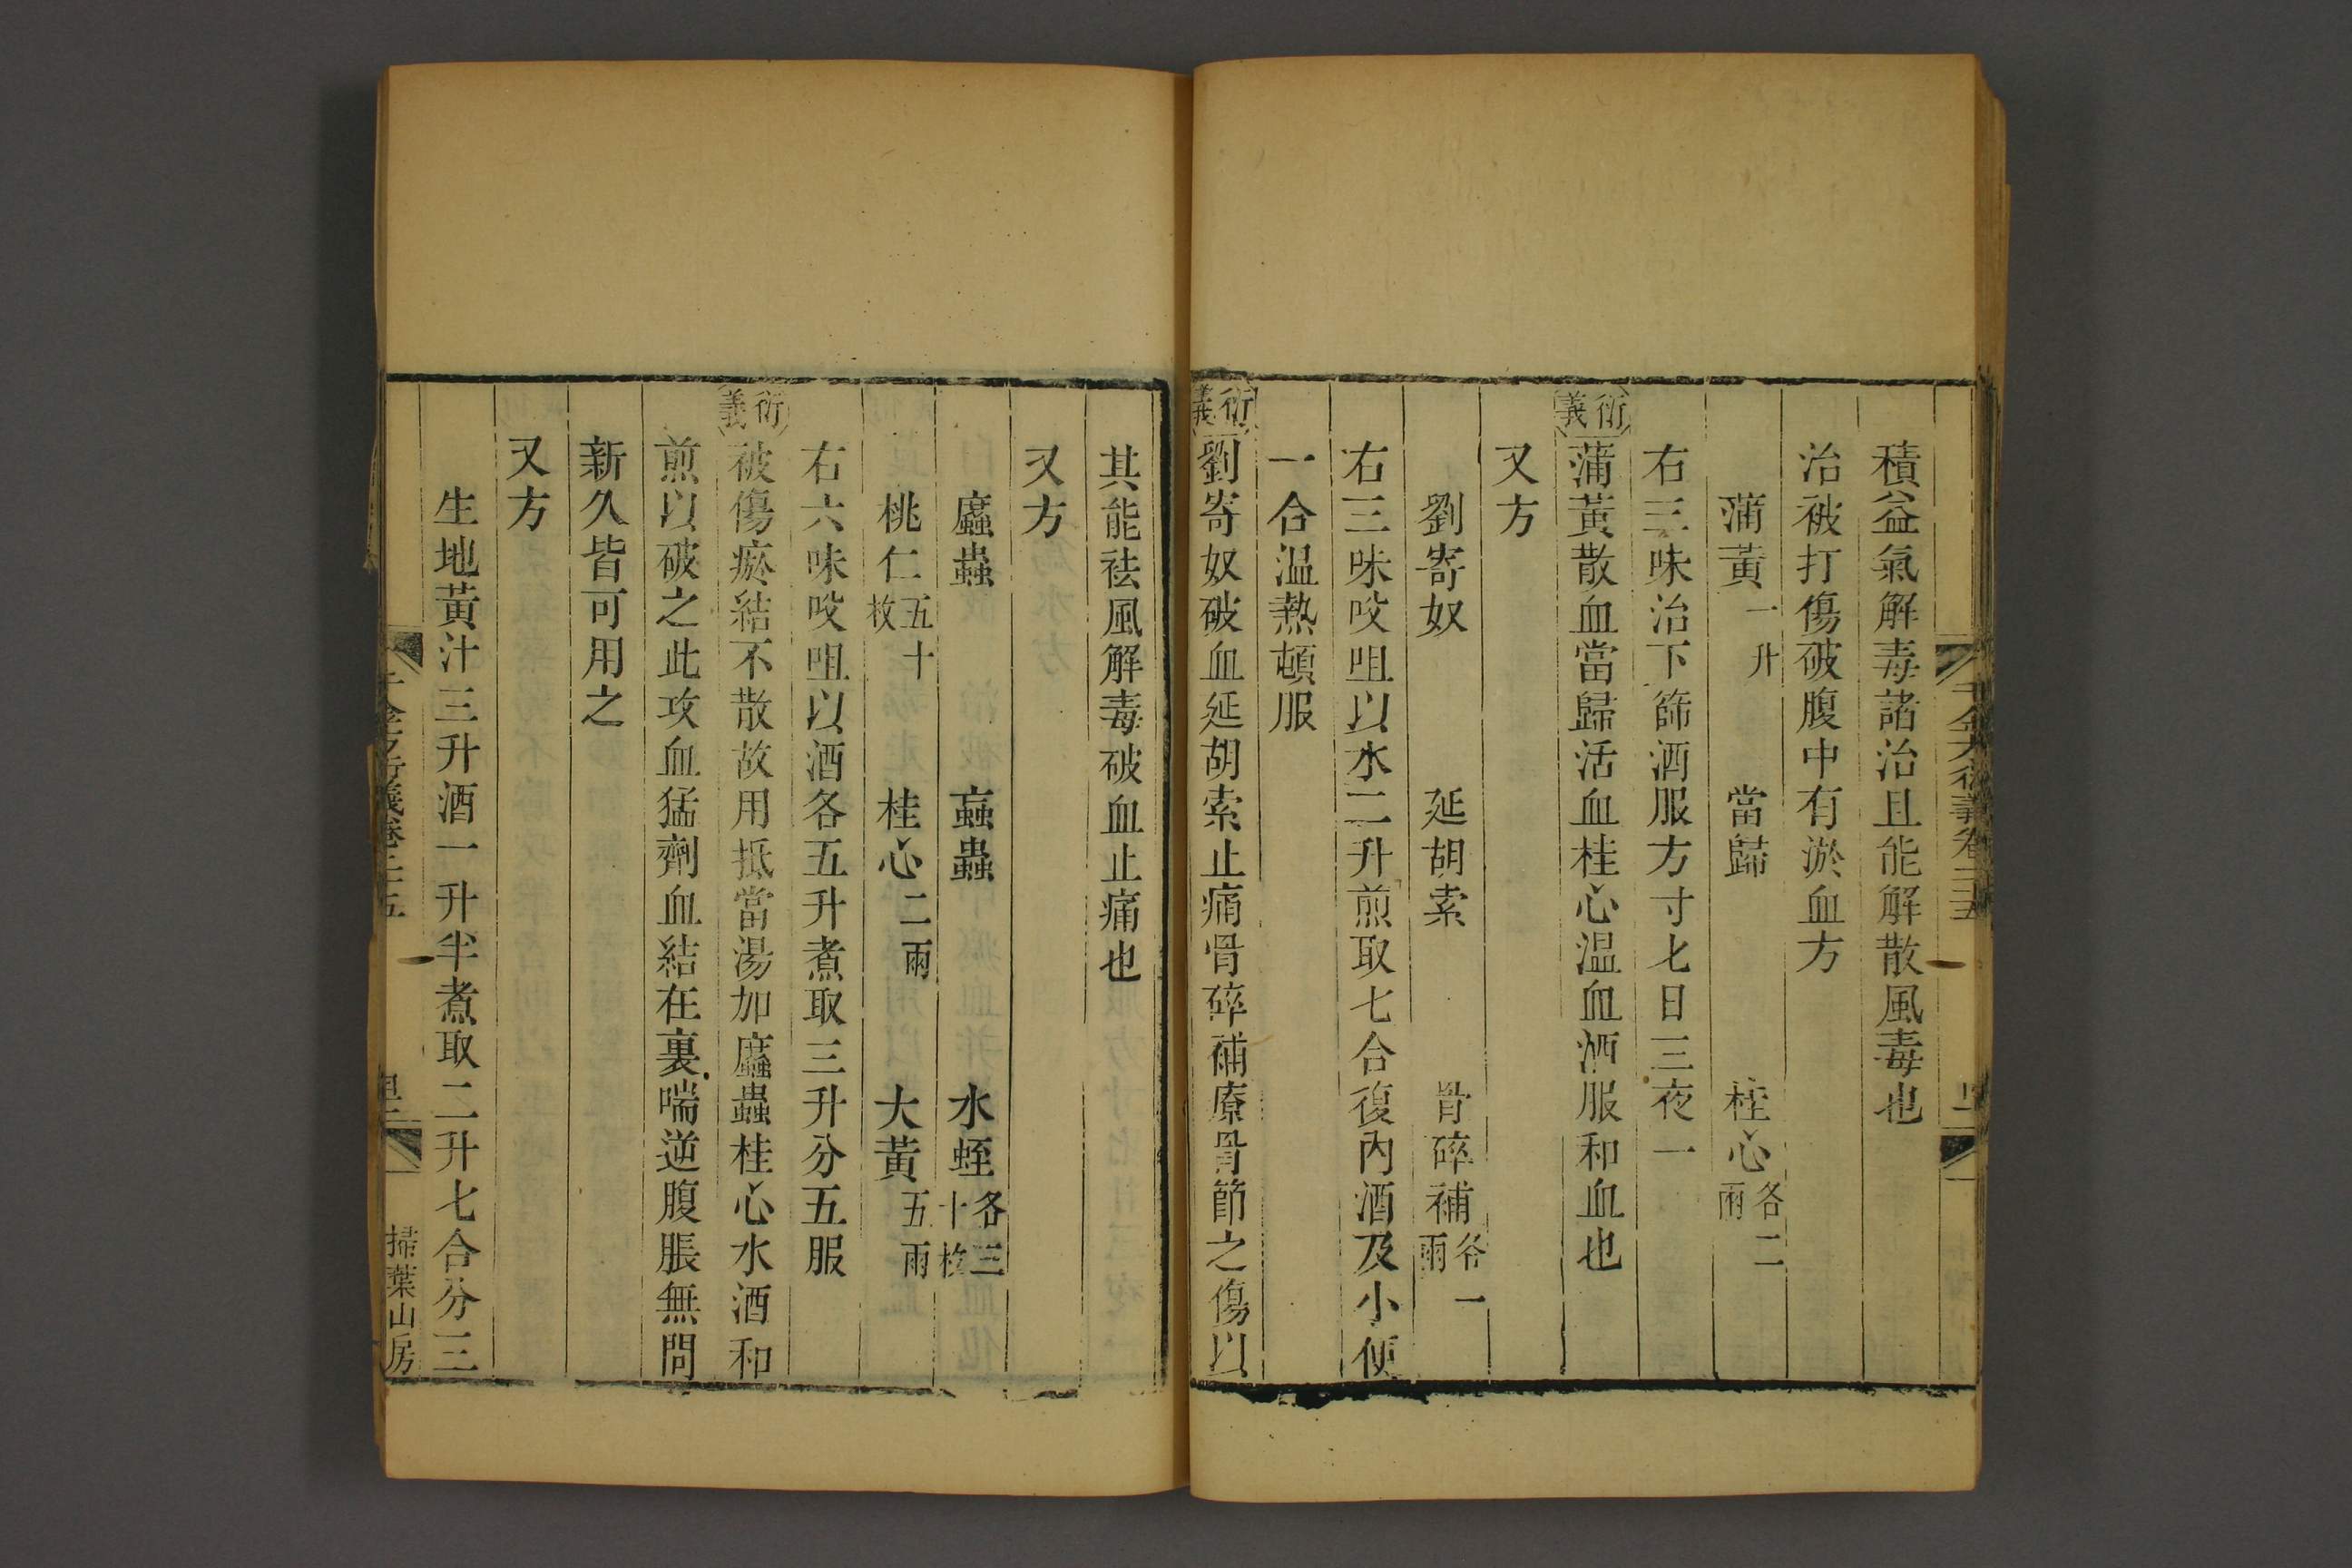 積益氣解毒諸治且能解散風毒也
治被打傷破腹中有淤血方
蒲黃一升 當歸 桂心各二兩
右三味治下篩酒服方寸匕日三夜一
衍義 蒲黃散血當歸活血桂心温血酒服和血也
又方
劉寄奴 延胡索 骨碎補各一兩
右三味㕮咀以水二升煎取七合復內酒及小便
一合温熱頓服
衍義 劉寄奴破血延胡索止痛骨碎補療骨節之傷以
其能祛風解毒破血止痛也
又方
䗪蟲 蝱蟲 水蛭各三十枚
桃仁五十枚 桂心二兩 大黃五兩
右六味㕮咀以酒各五升煮取三升分五服
衍義 被傷瘀結不散故用抵當湯加䗪蟲桂心水酒和
煎以破之此攻血猛劑血結在裏喘逆腹脹無問
新久皆可用之
又方
生地黃汁三升酒一升半煮取二升七合分三
掃葉山房